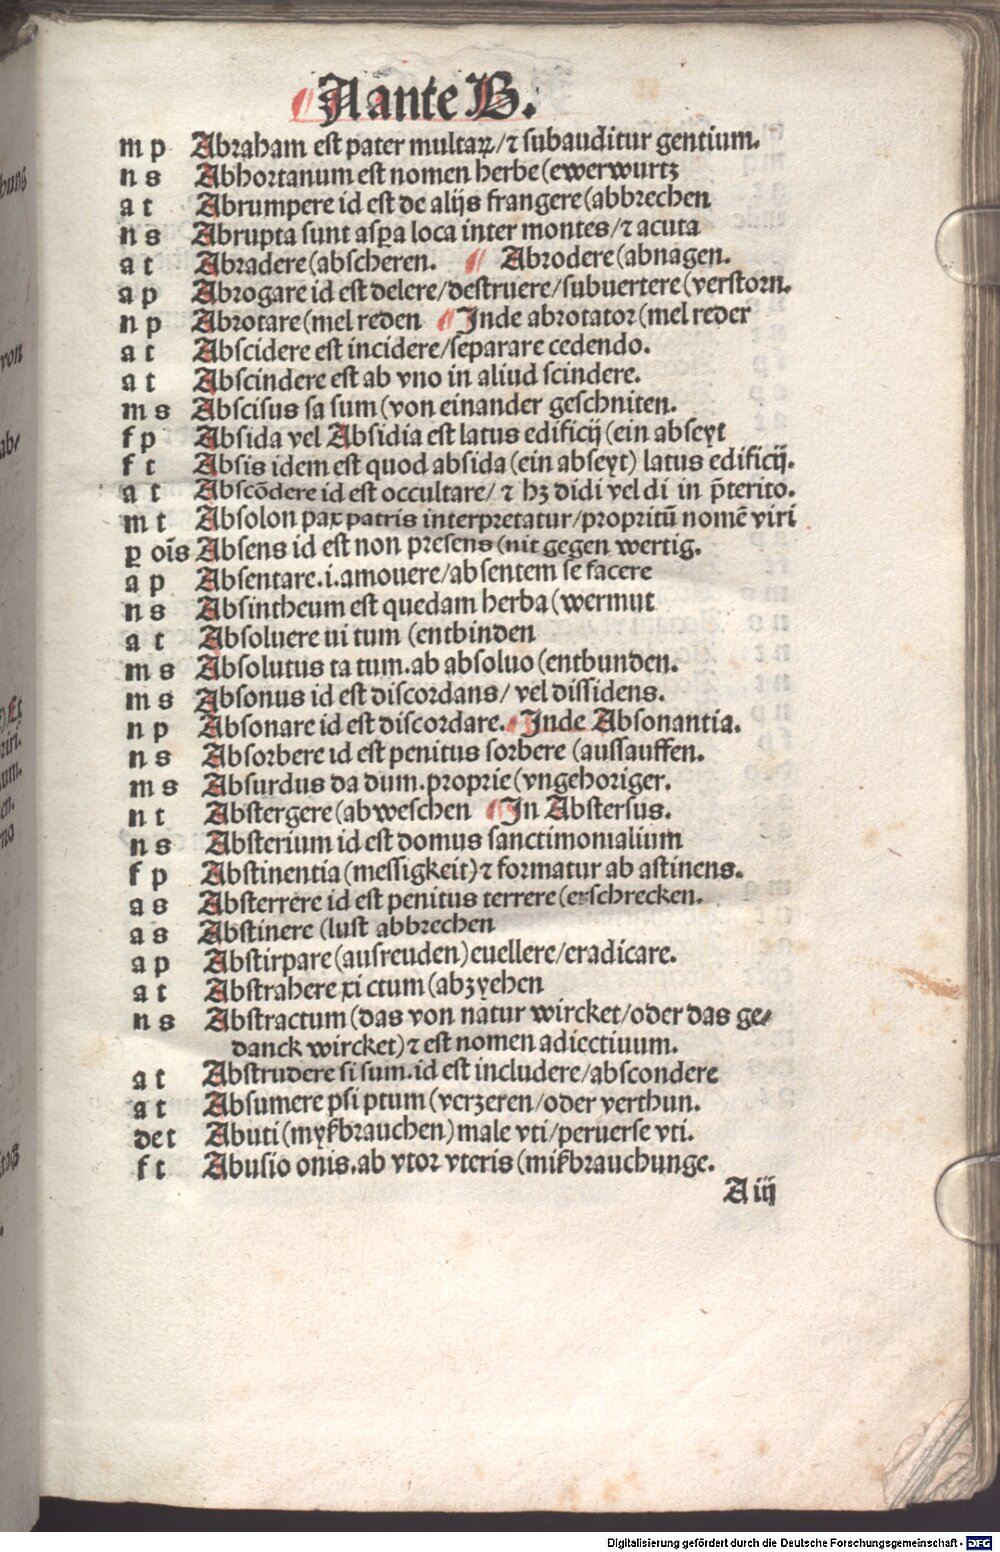 A ante B.
m p Abraham est pater multaꝝ/⁊ subauditur gentium.
n s Abhortanum est nomen herbe (ewerwurtz
a t Abrumpere id est de alijs frangere (abbrechen
n s Abrupta sunt aspa loca inter montes/⁊ acuta
a t Abradere (abscheren. Abrodere (abnagen.
a p Abrogare id est delere/destruere/subuertere (verstorn.
n p Abrotare (mel reden Inde abrotator (mel reder
a t Abscidere est incidere/separare cedendo.
a t Abscindere est ab vno in aliud scindere.
m s Abscisus sa sum (von einander geschniten.
f p Absida vel Absidia est latus edificij (ein abseyt
f t Absis idem est quod absida (ein abseyt) latus edificij.
a t Abscōdere id est occultare/ ⁊ hꝫ didi vel di in p̄terito.
m t Absolon pax patris interpretatur/propritū nomē viri
ꝑ oīs Absens id est non presens (nit gegen wertig.
a p Absentare .i. amouere/absentem se facere
n s Absintheum est quedam herba (wermut
a t Absoluere ui tum (entbinden
m s Absolutus ta tum. ab absoluo (entbunden.
m s Absonus id est discordans/ vel dissidens.
n p Absonare id est discordare. Inde Absonantia.
n s Absorbere id est penitus sorbere (aussauffen.
m s Absurdus da dum. proprie (vngehoriger.
n t Abstergere (abweschen In Abstersus.
n s Absterium id est domus sanctimonialium
f p Abstinentia (messigkeit) ⁊ formatur ab astinens.
a s Absterrere id est penitus terrere (erschrecken.
a s Abstinere (lust abbrechen
a p Abstirpare (ausreuden) euellere/eradicare.
a t Abstrahere xi ctum (abzyehen
n s Abstractum (das von natur wircket/oder das ge⸗
danck wircket) ⁊ est nomen adiectiuum.
a t Abstrudere si sum. id est includere/abscondere
a t Absumere psi ptum (verzeren/oder verthun.
de t Abuti (myßbrauchen) male vti/peruerse vti.
f t Abusio onis. ab vtor vteris (mißbrauchunge.
A iij
Digitalisierung gefördert durch die Deutsche Forschungsgemeinschaft - DFG